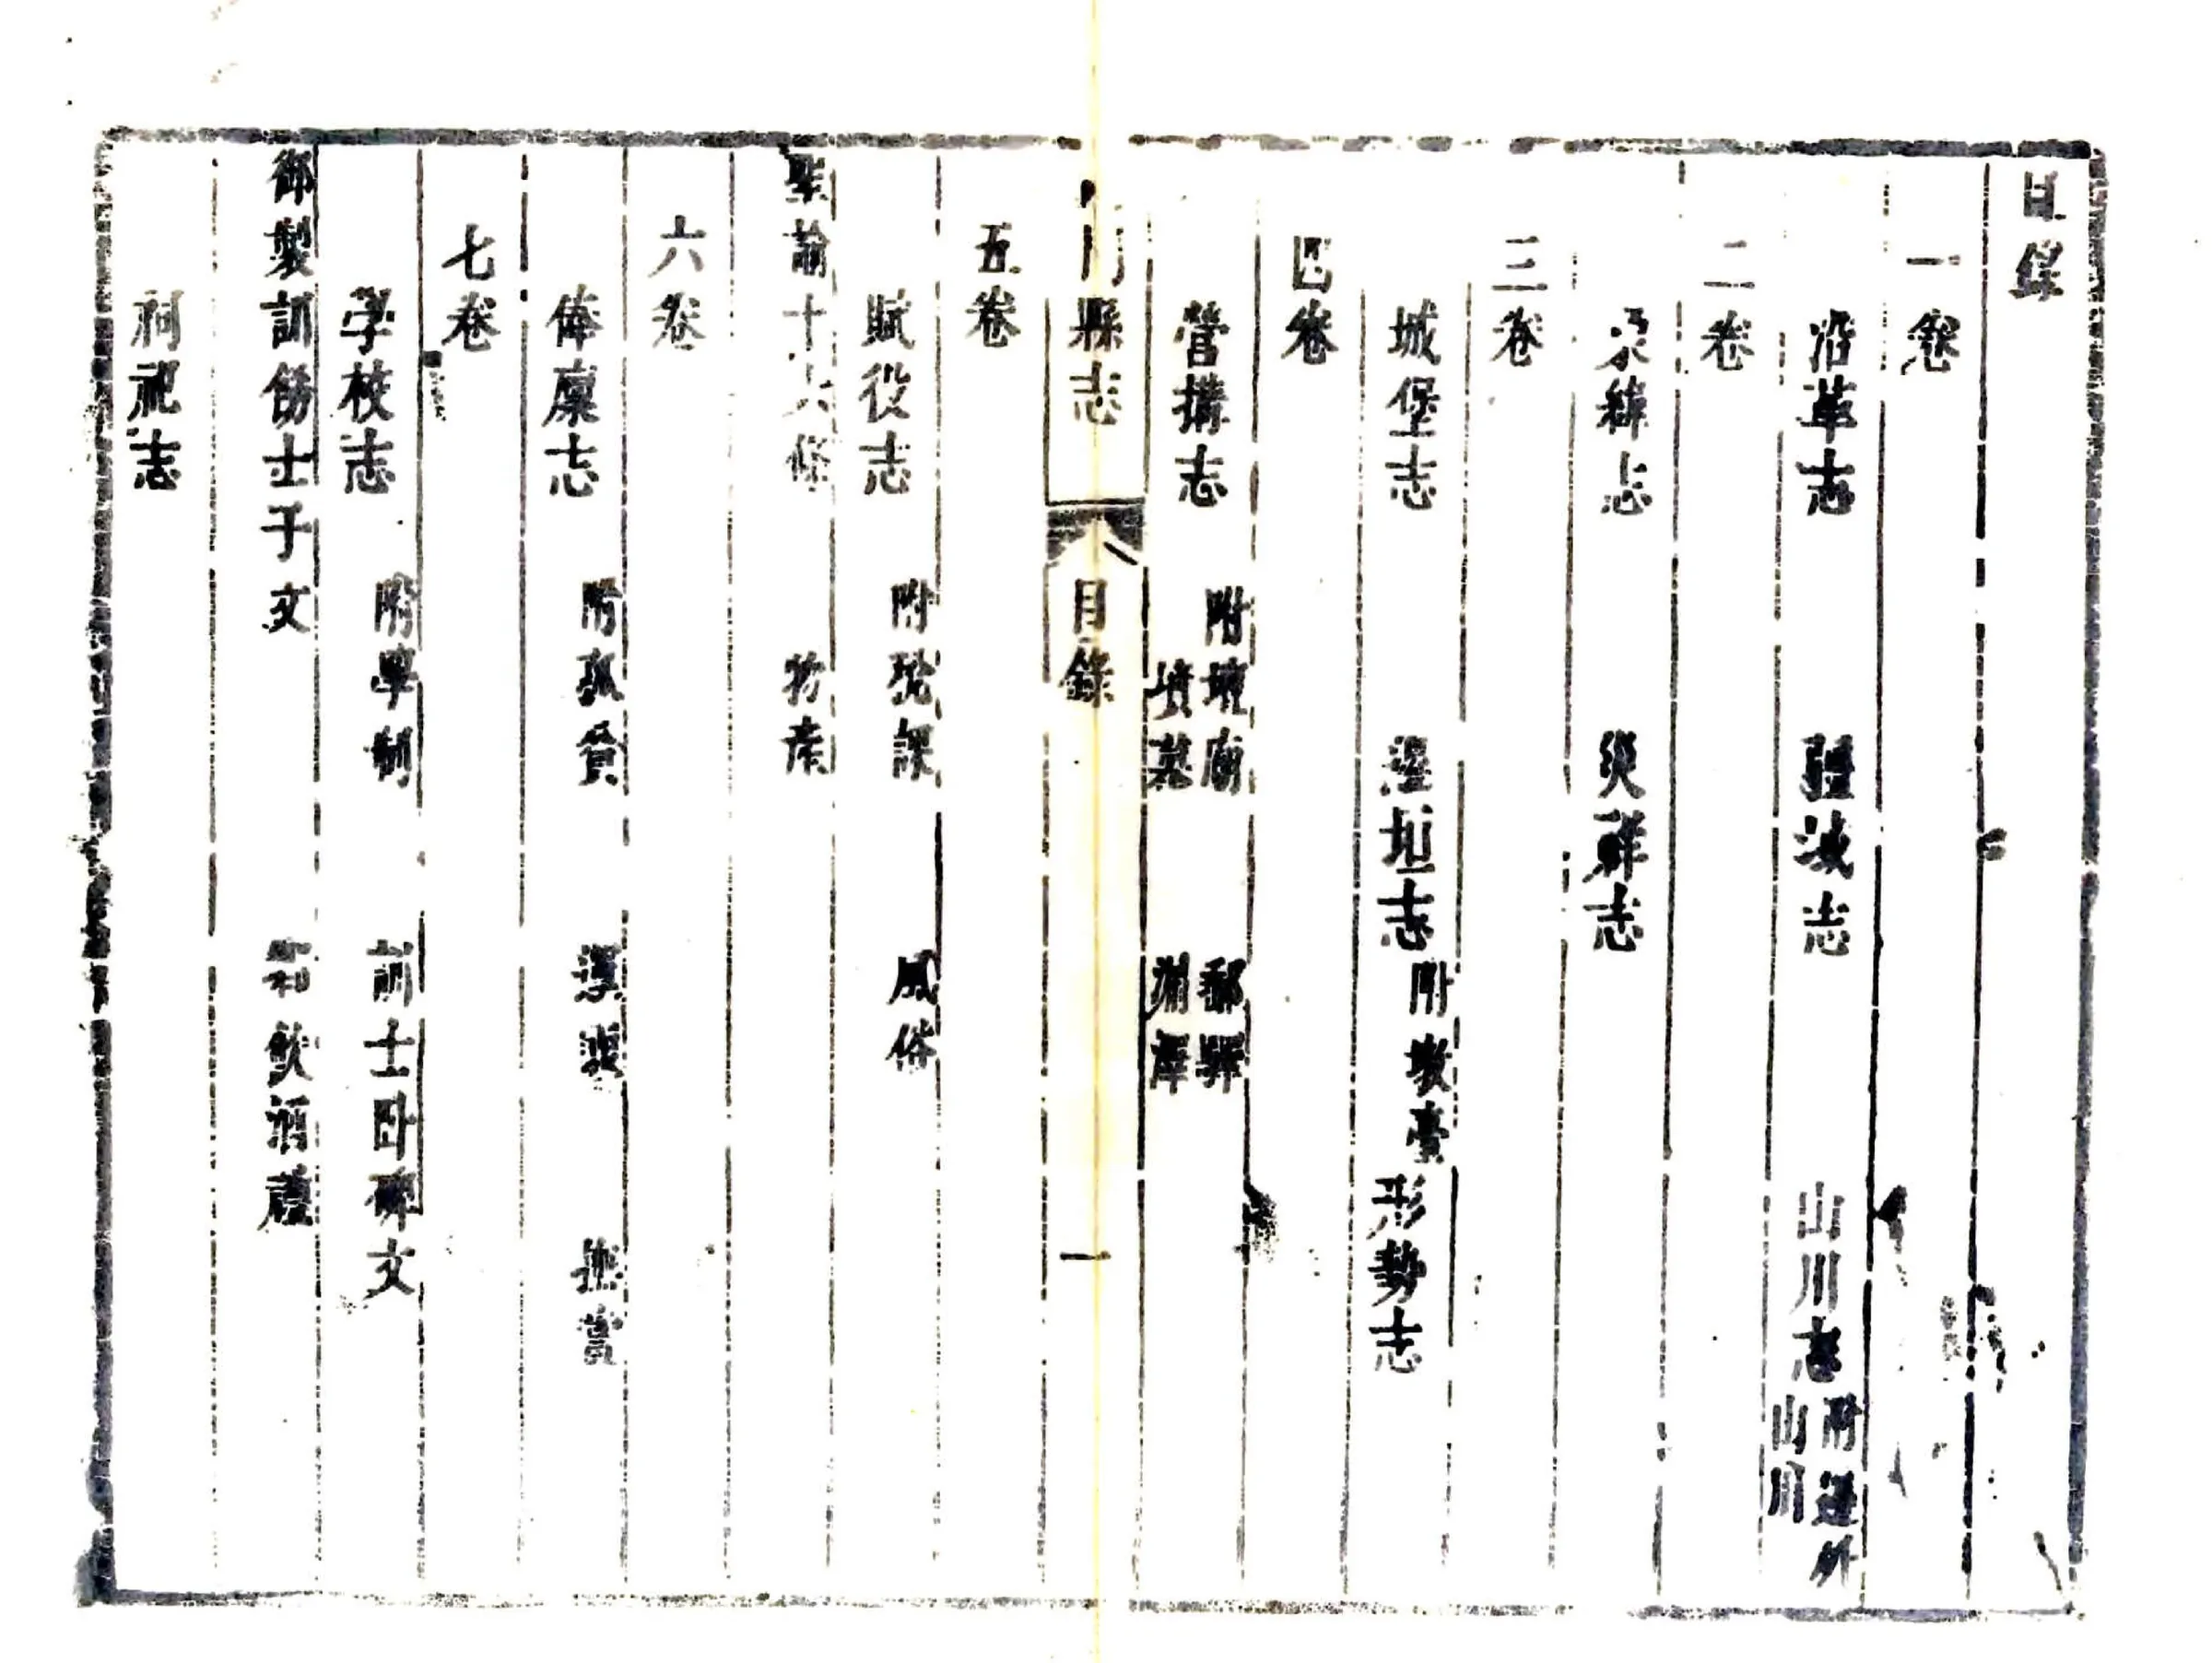 目錄
一卷
沿革志 疆域志 山川志 附邊外山川
二卷
象緯志 災祥志
三卷
城堡志 邊垣志 附墩臺 形勢志
四卷
營搆志 附壇廟 墳墓 郵驛
門縣志 目錄 一
五卷
賦役志 附稅課 風俗
聖諭十六條 物產
六卷
俸廩志 附孤貧 撫賞
七卷
學校志 附學制 訓士卧碑文
御製訓飭士子文 鄉飲酒禮
祠祀志